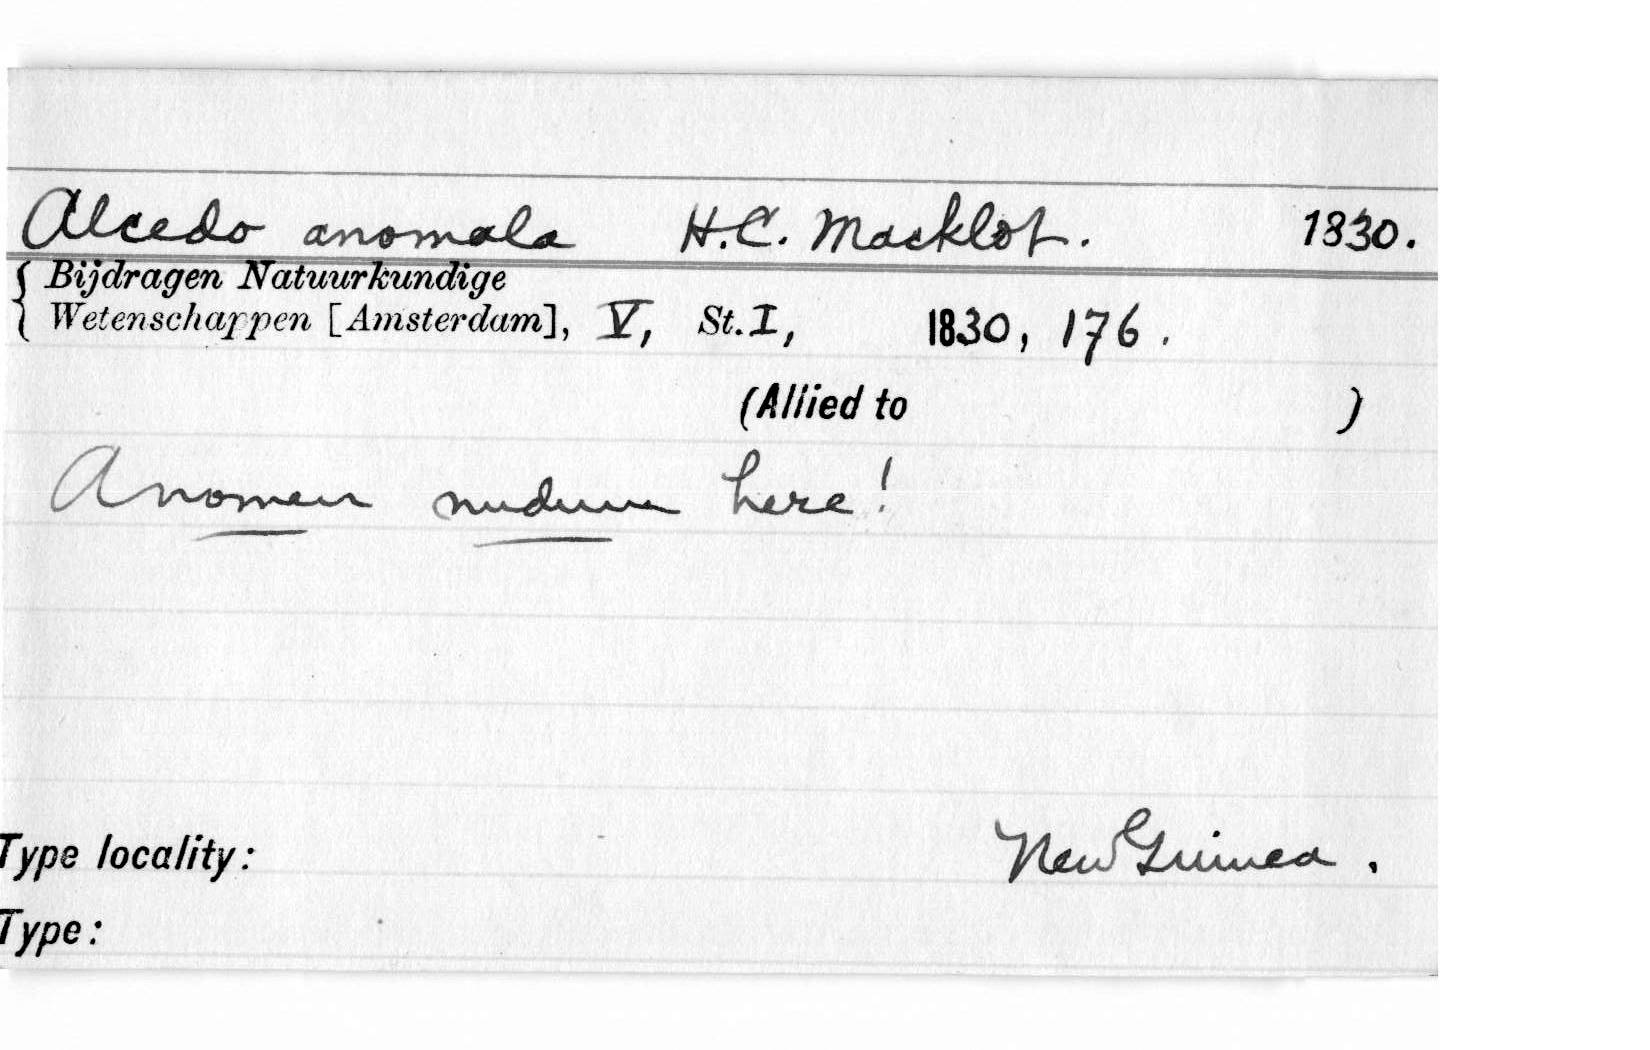 Alcedo anomala H.C. Macklot. 1830.
{ Bijdragen Natuurkundige
Wetenschappen [Amsterdam], V, St. I, 1830, 176.
(Allied to )
A nomen nudum here!
Type locality: New Guinea.
Type: